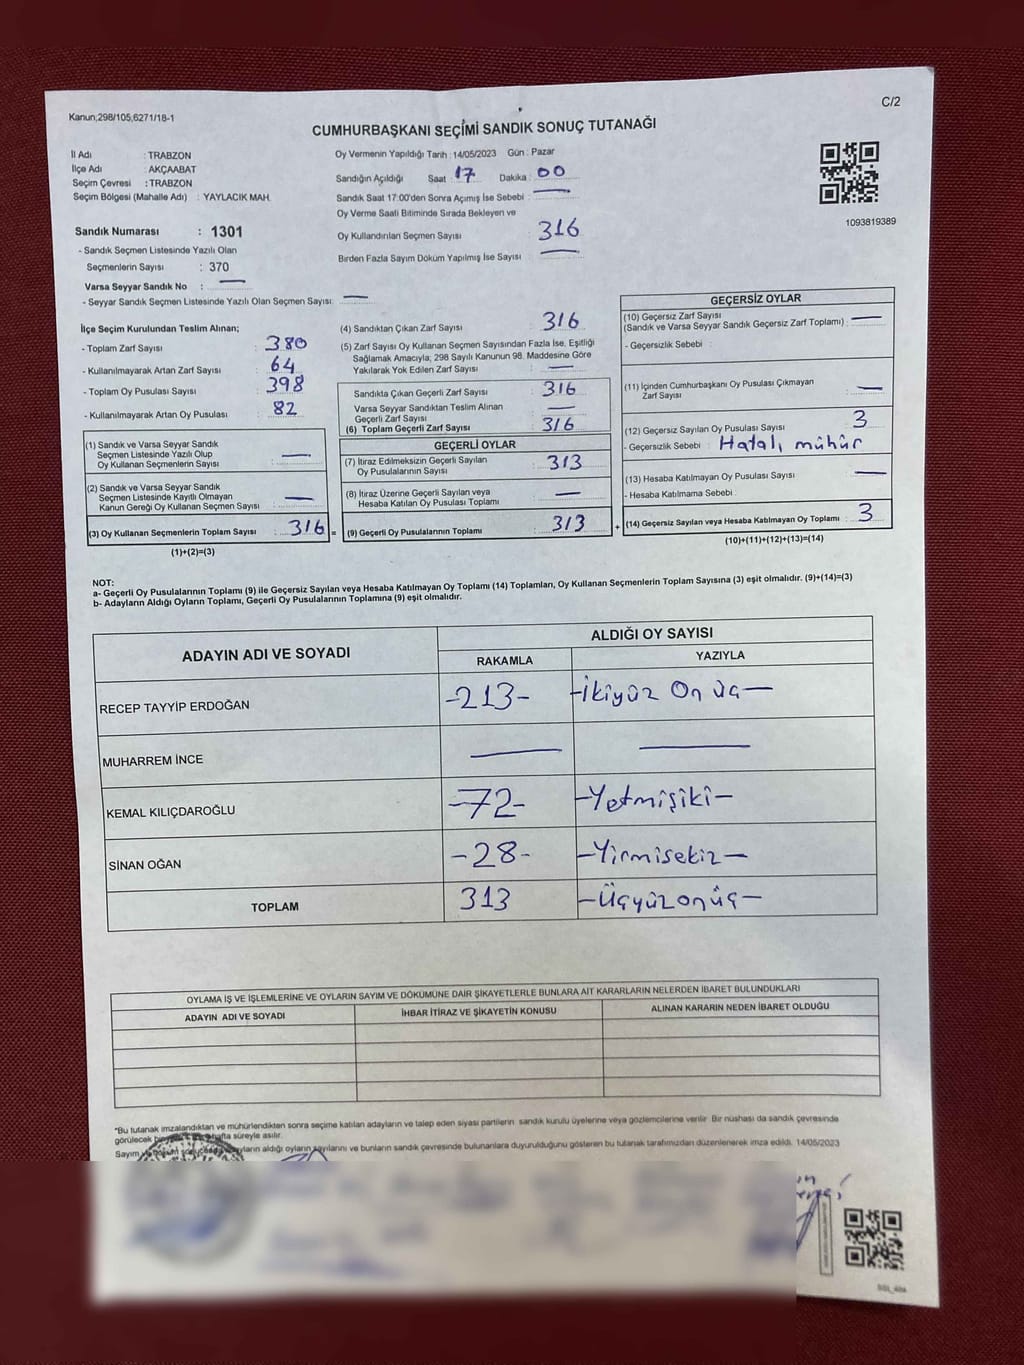 Kanun;298/105,6271/18-1
C/2
CUMHURBAŞKANI SEÇİMİ SANDIK SONUÇ TUTANAĞI
İl Adı : TRABZON
İlçe Adı : AKÇAABAT
Seçim Çevresi : TRABZON
Seçim Bölgesi (Mahalle Adı) : YAYLACIK MAH.
Oy Vermenin Yapıldığı Tarih : 14/05/2023 Gün : Pazar
Sandığın Açıldığı Saat : 17 Dakika : 00
Sandık Saat 17:00'den Sonra Açımış İse Sebebi : —
Oy Verme Saati Bitiminde Sırada Bekleyen ve
Oy Kullandırılan Seçmen Sayısı : 316
Birden Fazla Sayım Döküm Yapılmış İse Sayısı : —
1093819389
Sandık Numarası : 1301
- Sandık Seçmen Listesinde Yazılı Olan
Seçmenlerin Sayısı : 370
Varsa Seyyar Sandık No : —
- Seyyar Sandık Seçmen Listesinde Yazılı Olan Seçmen Sayısı: —
İlçe Seçim Kurulundan Teslim Alınan;
- Toplam Zarf Sayısı : 380
- Kullanılmayarak Artan Zarf Sayısı : 64
- Toplam Oy Pusulası Sayısı : 398
- Kullanılmayarak Artan Oy Pusulası : 82
(1) Sandık ve Varsa Seyyar Sandık
Seçmen Listesinde Yazılı Olup
Oy Kullanan Seçmenlerin Sayısı : —
(2) Sandık ve Varsa Seyyar Sandık
Seçmen Listesinde Kayıtlı Olmayan
Kanun Gereği Oy Kullanan Seçmen Sayısı : —
(3) Oy Kullanan Seçmenlerin Toplam Sayısı : 316 =
(1)+(2)=(3)
(4) Sandıktan Çıkan Zarf Sayısı : 316
(5) Zarf Sayısı Oy Kullanan Seçmen Sayısından Fazla İse, Eşitliği
Sağlamak Amacıyla; 298 Sayılı Kanunun 98. Maddesine Göre
Yakılarak Yok Edilen Zarf Sayısı : —
Sandıkta Çıkan Geçerli Zarf Sayısı : 316
Varsa Seyyar Sandıktan Teslim Alınan
Geçerli Zarf Sayısı : —
(6) Toplam Geçerli Zarf Sayısı : 316
GEÇERLİ OYLAR
(7) İtiraz Edilmeksizin Geçerli Sayılan
Oy Pusulalarının Sayısı : 313
(8) İtiraz Üzerine Geçerli Sayılan veya
Hesaba Katılan Oy Pusulası Toplamı : —
(9) Geçerli Oy Pusulalarının Toplamı : 313 +
GEÇERSİZ OYLAR
(10) Geçersiz Zarf Sayısı
(Sandık ve Varsa Seyyar Sandık Geçersiz Zarf Toplamı) : —
- Geçersizlik Sebebi :
(11) İçinden Cumhurbaşkanı Oy Pusulası Çıkmayan
Zarf Sayısı : —
(12) Geçersiz Sayılan Oy Pusulası Sayısı : 3
- Geçersizlik Sebebi : Hatalı mühür
(13) Hesaba Katılmayan Oy Pusulası Sayısı : —
- Hesaba Katılmama Sebebi :
(14) Geçersiz Sayılan veya Hesaba Katılmayan Oy Toplamı : 3
(10)+(11)+(12)+(13)=(14)
NOT:
a- Geçerli Oy Pusulalarının Toplamı (9) ile Geçersiz Sayılan veya Hesaba Katılmayan Oy Toplamı (14) Toplamları, Oy Kullanan Seçmenlerin Toplam Sayısına (3) eşit olmalıdır. (9)+(14)=(3)
b- Adayların Aldığı Oyların Toplamı, Geçerli Oy Pusulalarının Toplamına (9) eşit olmalıdır.
ADAYIN ADI VE SOYADI
ALDIĞI OY SAYISI
RAKAMLA YAZIYLA
RECEP TAYYİP ERDOĞAN -213- -İkiyüz On üç-
MUHARREM İNCE — —
KEMAL KILIÇDAROĞLU -72- -Yetmişiki-
SİNAN OĞAN -28- -Yirmisekiz-
TOPLAM 313 -Üçyüzonüç-
OYLAMA İŞ VE İŞLEMLERİNE VE OYLARIN SAYIM VE DÖKÜMÜNE DAİR ŞİKAYETLERLE BUNLARA AİT KARARLARIN NELERDEN İBARET BULUNDUKLARI
ADAYIN ADI VE SOYADI İHBAR İTİRAZ VE ŞİKAYETİN KONUSU ALINAN KARARIN NEDEN İBARET OLDUĞU
"Bu tutanak imzalandıktan ve mühürlendikten sonra seçime katılan adayların ve talep eden siyasi partilerin sandık kurulu üyelerine veya gözlemcilerine verilir. Bir nüshası da sandık çevresinde
görülecek bir hafta süreyle asılır.
Sayım ve aldığı oyların sayılarını ve bunların sandık çevresinde bulunanlara duyurulduğunu gösteren bu tutanak tarafımızdan düzenlenerek imza edildi. 14/05/2023